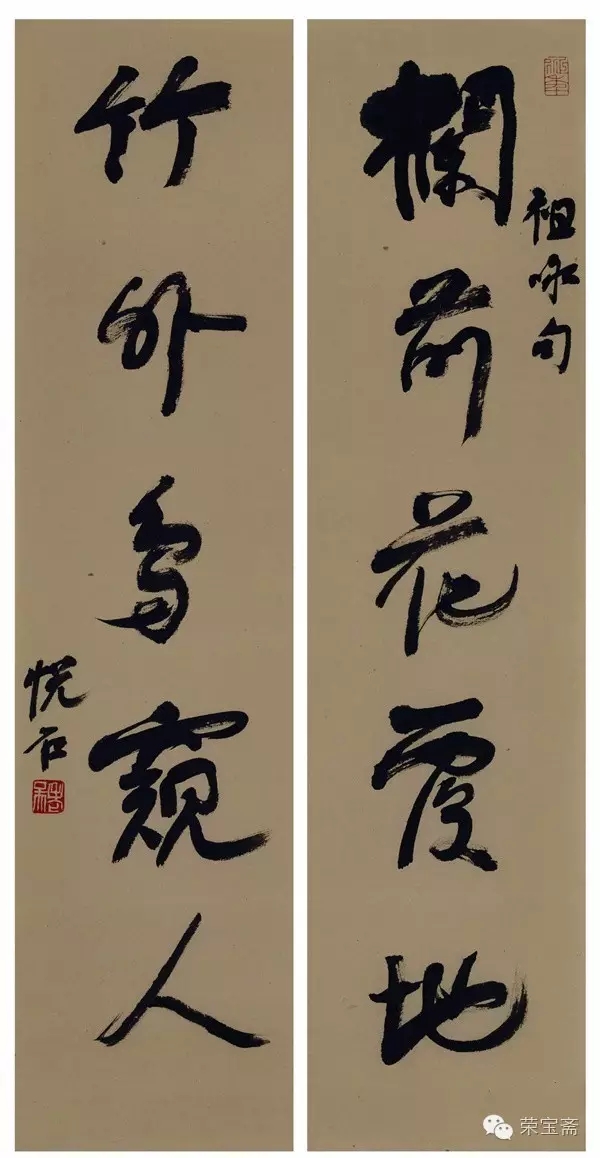 祖咏句
欄前花覆地
竹外鳥窺人
悦石
荣宝斋